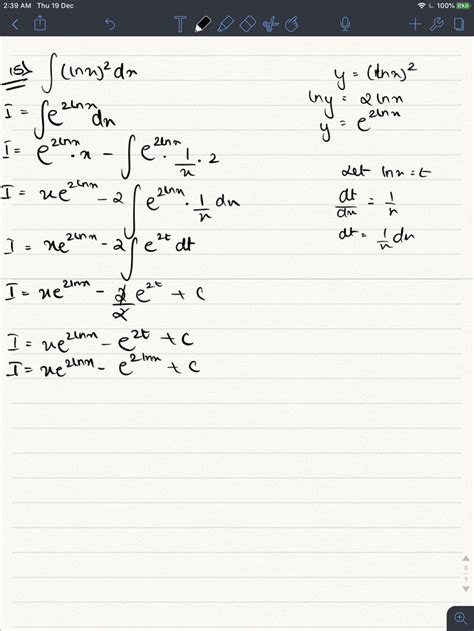 2:39 AM Thu 19 Dec
100%
15) ∫(lnx)² dx
I = ∫e^{2lnx} dx
I = e^{2lnx} · x − ∫e^{2lnx} · 1/x · 2
I = xe^{2lnx} − 2∫e^{2lnx} · 1/x dx
I = xe^{2lnx} − 2∫e^{2t} dt
I = xe^{2lnx} − 2/2 e^{2t} + C
I = xe^{2lnx} − e^{2t} + C
I = xe^{2lnx} − e^{2lnx} + C
y = (lnx)²
lny = 2lnx
y = e^{2lnx}
Let lnx = t
dt/dx = 1/x
dt = 1/x dx